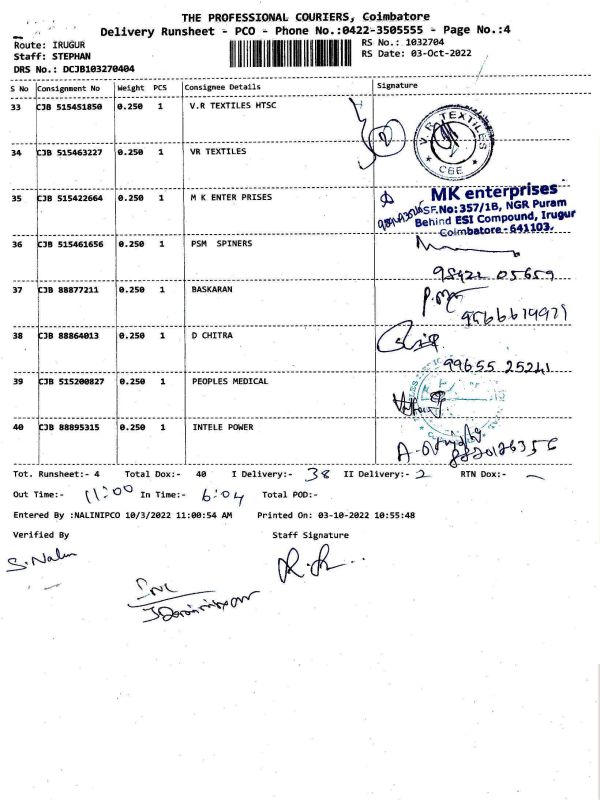 THE PROFESSIONAL COURIERS, Coimbatore
Delivery Runsheet - PCO - Phone No.:0422-3505555 - Page No.:4
Route: IRUGUR
RS No.: 1032704
Staff: STEPHAN
RS Date: 03-Oct-2022
DRS No.: DCJB103270404
S No Consignment No Weight PCS Consignee Details Signature
33 CJB 515451850 0.250 1 V.R TEXTILES HTSC
V.R TEXTILES
CBE
34 CJB 515463227 0.250 1 VR TEXTILES
35 CJB 515422664 0.250 1 M K ENTER PRISES
MK enterprises
SF.No:357/1B, NGR Puram
Behind ESI Compound, Irugur
Coimbatore - 641103.
36 CJB 515461656 0.250 1 PSM SPINERS
98422 05659
37 CJB 88877211 0.250 1 BASKARAN
38 CJB 88864013 0.250 1 D CHITRA
99655 25241
39 CJB 515200827 0.250 1 PEOPLES MEDICAL
40 CJB 88895315 0.250 1 INTELE POWER
Tot. Runsheet:- 4 Total Dox:- 40 I Delivery:- 38 II Delivery:- 2 RTN Dox:-
Out Time:- 11:00 In Time:- 6:04 Total POD:-
Entered By :NALINIPCO 10/3/2022 11:00:54 AM Printed On: 03-10-2022 10:55:48
Verified By Staff Signature
S. Nalini